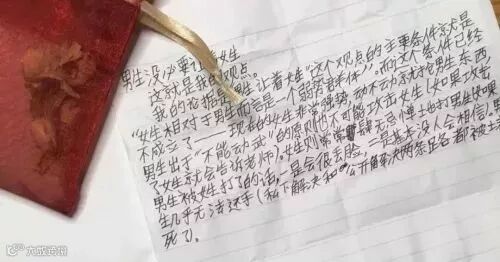 男生没必要让着女生
这就是我的观点。
我的依据是“男生让着女生”这个观点的主要条件就是
“女生相对于男生而言是一个弱势群体”。而这个条件已经
不成立了——现在的女生非常强势,动不动就抢男生东西,
男生出于“不能动武”的原则也不可能攻击女生(如果攻击
了女生就会告诉老师),女生则常常肆无忌惮地打男生。如果
男生被女生打了的话,一是会很丢脸,二是基本没人会相信,
生几乎无法还手(私下解决和公开解决两条后路都被
死了)。
大成跨境